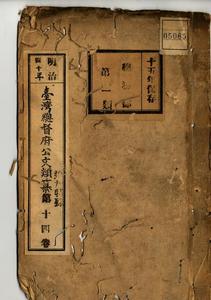 05085
十五年保存
第一
明治
四十年
臺灣總督府公文類纂
第十四卷